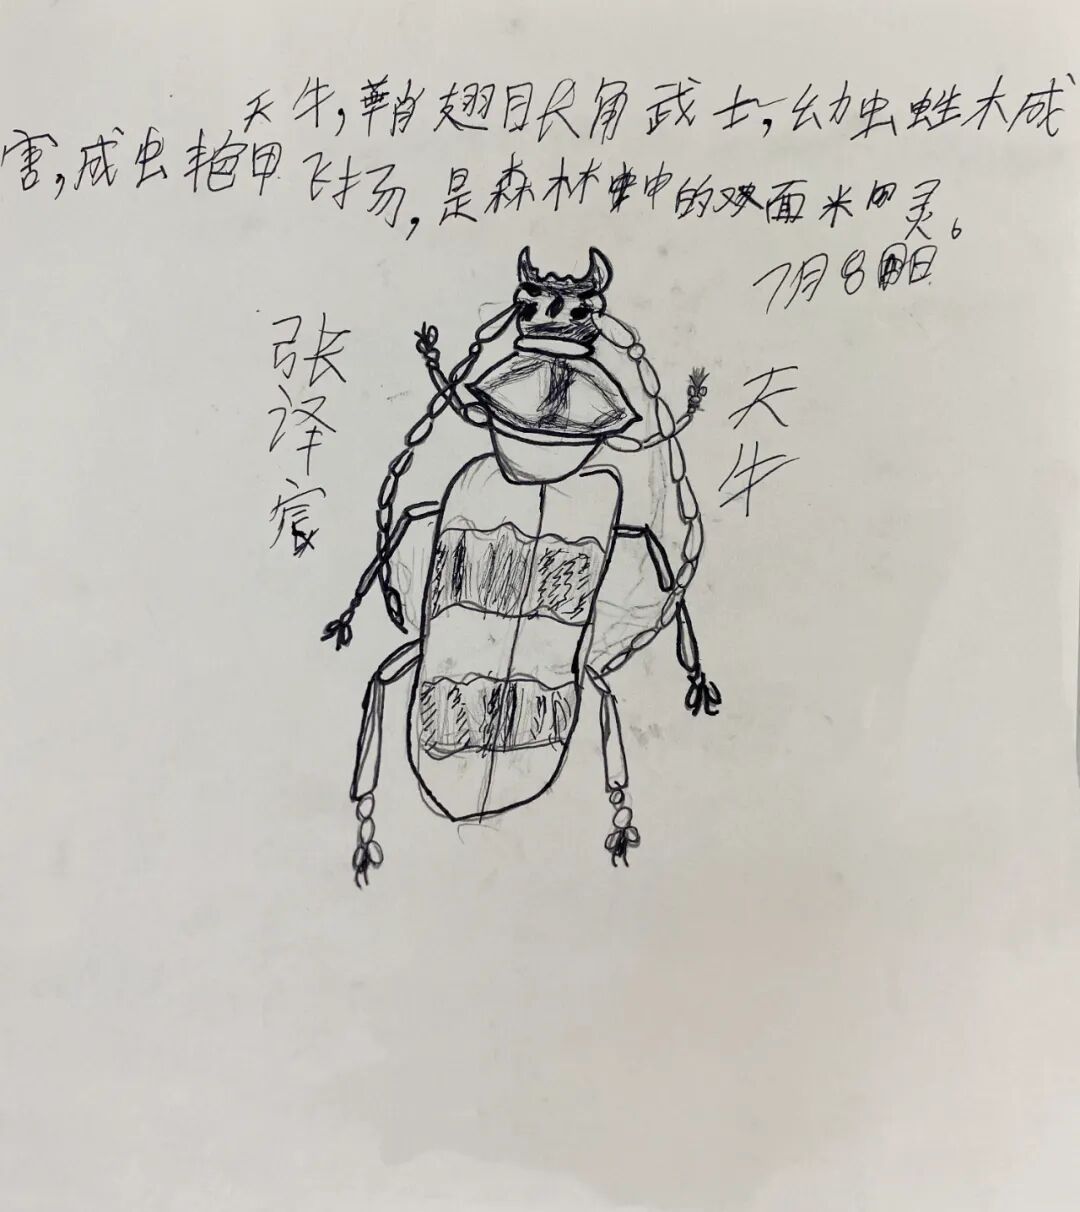 天牛,鞘翅目长角武士,幼虫蛀木成
害,成虫艳甲飞扬,是森林中的双面精灵。
7月8日
张
泽
宸
天
牛